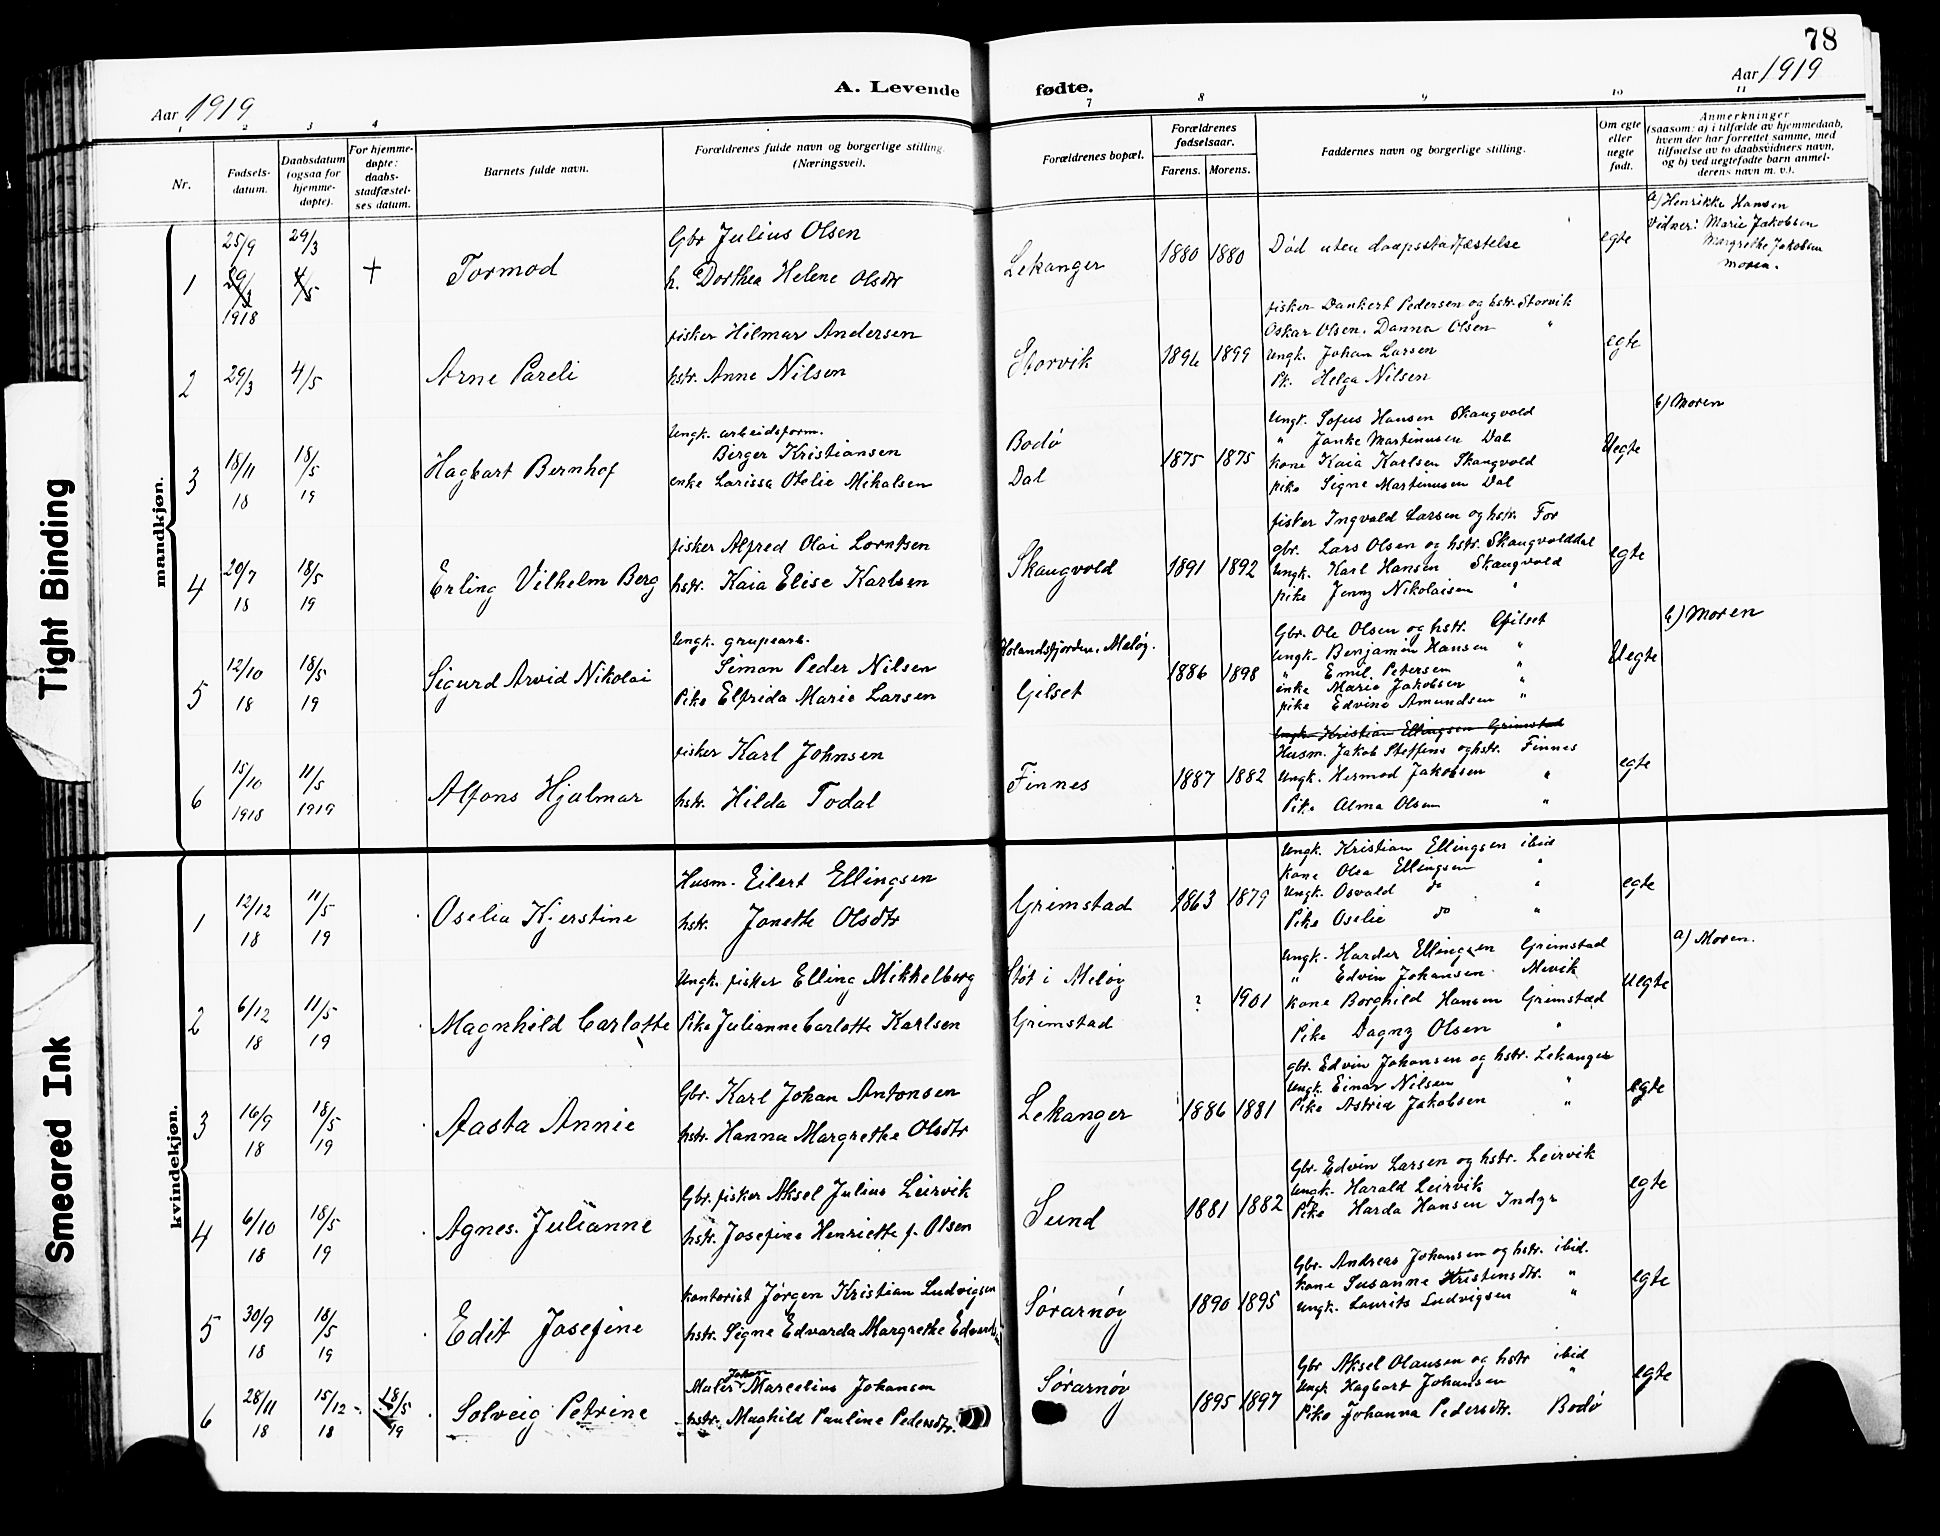 78
Aar 1919
A. Levende
fødte.
Aar 1919
1 2 3 4
7 8 9 10 11
Nr.
Fødsels-
datum.
Daabsdatum
(ogsaa for
hjemme-
døpte).
For hjemme-
døpte:
daabs-
stadfæstel-
ses datum.
Barnets fulde navn.
Forældrenes fulde navn og borgerlige stilling.
(Næringsvei).
Forældrenes bopæl.
Forældrenes
fødselsaar.
Farens. Morens.
Faddernes navn og borgerlige stilling.
Om egte
eller
uegte
født.
Anmerkninger
(saasom: a) i tilfælde av hjemmedaab,
hvem der har forrettet samme, med
tilføielse av to daabsvidners navn,
og b) ved uegtefødte barn anmel-
derens navn m. v.).
mandkjøn.
1
25/9
29/3
1918
29/3
4/5
+
Tormod
Gbr Julius Olsen
h. Dorthea Helene Olsdtr
Lekanger
1880 1880
Død uten daapsstadfæstelse
egte
a) Henrikke Hansen
Vidner: Marie Jakobsen
Margrethe Jakobsen
Moren.
2
29/3
4/5
Arne Pareli
fisker Hilmar Andersen
hstr. Anne Nilsen
Storvik
1896 1899
fisker Dankert Pedersen og hstr. Storvik
Oskar Olsen. Danna Olsen "
Ungk. Johan Larsen
Pk. Helga Nilsen
egte
3
18/11
18
18/5
19
Hagbart Bernhof
Ungk. arbeidsform.
Birger Kristiansen
enke Larissa Otelie Mikalsen
Bodø
Dal
1875 1875
Ungk. Sofus Hansen Skaugvold
" Janke Martinusen Dal
kone Kaia Karlsen Skaugvold
pike Signe Martinusen Dal
Uegte
b) Moren
4
20/7
18
18/5
19
Erling Vilhelm Berg
fisker Alfred Olai Lorntsen
hstr. Kaia Elise Karlsen
Skaugvold
1891 1892
fisker Ingvald Larsen og hstr. For
gbr. Lars Olsen og hstr. Skaugvolddal
Ungk. Karl Hansen Skaugvold
pike Jenny Nikolaisen "
egte
5
12/10
18
18/5
19
Sigurd Arvid Nikolai
Ungk. grupearb.
Simon Peder Nilsen
Pike Elfreda Marie Larsen
Holandsfjorden. Meløy.
Gilset
1886 1898
Gbr. Ole Olsen og hstr. Gilset
Ungk. Benjamin Hansen "
" Emil Petersen "
enke Marie Jakobsen "
pike Edvine Amundsen "
Uegte
b) Moren
6
15/10
1918
11/5
1919
Alfons Hjalmar
fisker Karl Johnsen
hstr. Hilda Todal
Finnes
1887 1882
Ungk. Kristian Ellingsen Grimstad
Husm. Jakob Steffens og hstr. Finnes
Ungk. Hermod Jakobsen "
Pike Alma Olsen "
egte
kvindekjøn.
1
12/12
18
11/5
19
Oselia Kjerstine
Husm. Eilert Ellingsen
hstr. Jonette Olsdtr
Grimstad
1863 1879
Ungk. Kristian Ellingsen ibid
Kone Olea Ellingsen "
Ungk. Osvald do "
Pike Oselie do "
egte
2
6/12
18
11/5
19
Magnhild Carlotte
Ungk. fisker Elling Mikkelborg
Pike Julianne Carlotte Karlsen
Støt i Meløy
Grimstad
? 1901
Ungk. Harder Ellingsen Grimstad
" Edvin Johansen Mevik
kone Borghild Hansen Grimstad
Pike Dagny Olsen "
Uegte
a) Moren.
3
16/9
18
18/5
19
Aasta Annie
Gbr. Karl Johan Antonsen
hstr. Hanna Margrethe Olsdtr
Lekanger
1886 1881
gbr. Edvin Johansen og hstr. Lekanger
Ungk. Einar Nilsen "
Pike Astrid Jakobsen "
egte
4
6/10
18
18/5
19
Agnes. Julianne
Gbr. fisker Aksel Julius Leirvik
hstr. Josefine Henriette f. Olsen
Sund
1881 1882
Gbr. Edvin Larsen og hstr. Leirvik
Ungk. Harald Leirvik
Pike Harda Hansen Indyr
egte
5
30/9
18
18/5
19
Edit Josefine
kontorist Jørgen Kristian Ludvigsen
hstr. Signe Edvarda Margrethe
Sørarnøy
1890 1895
Gbr. Andreas Johansen og hstr. ibid.
kone Susanne Kristensdtr. "
Ungk. Laurits Ludvigsen "
egte
6
28/11
18
15/12
18
18/5
19
Solveig Petrine
Johan
Maler Marcelius Johansen
hstr. Maghild Pauline Pedersdtr.
Sørarnøy
1895 1897
Gbr Aksel Olausen og hstr ibid
Ungk Hagbart Johansen "
Pike Johanna Pedersdtr. Bodø
egte
Tight Binding
Smeared Ink